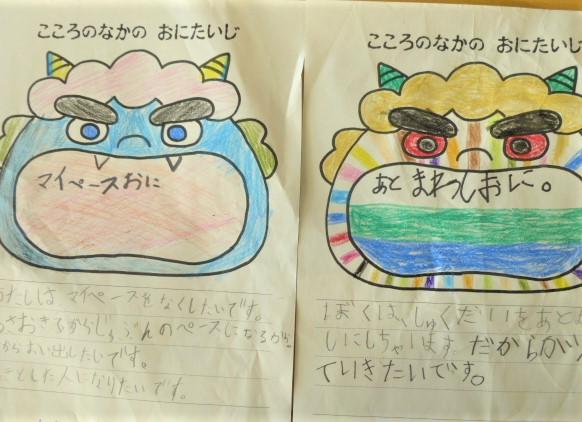 こころのなかの おにたいじ
マイペースおに
わたしは マイペースをなくしたいです。
おきるからじぶんのペースになるから
からおい出したいです。
とした人になりたいです。
こころのなかの おにたいじ
あとまわしおに。
ぼくは、しゅくだいをあと
しにしちゃいます だからが
ていきたいです。